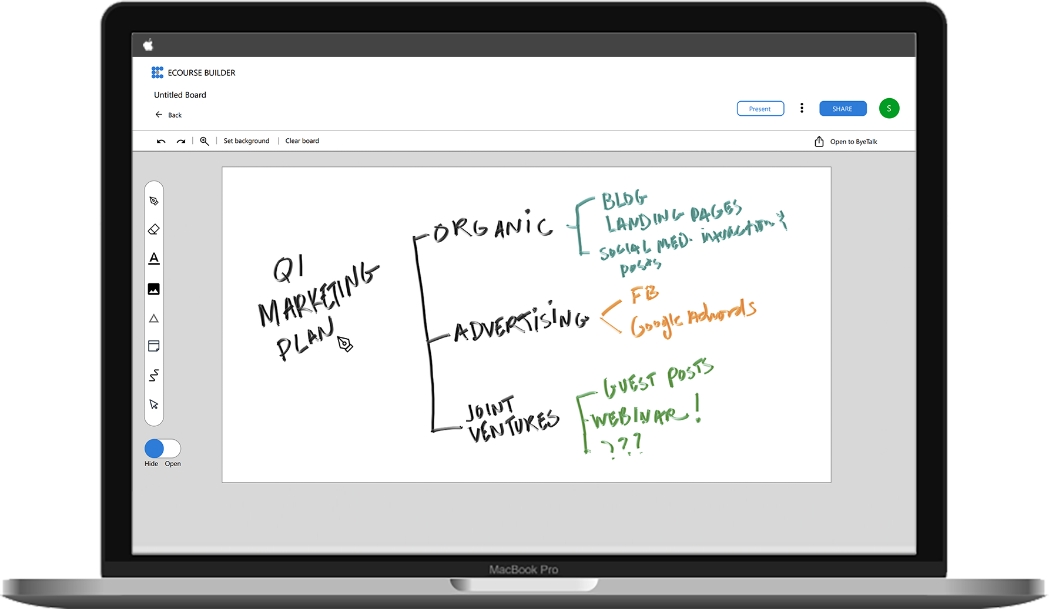 ECOURSE BUILDER
Untitled Board
Back
Present
SHARE
S
Set background
Clear board
Open to ByeTalk
Q1
MARKETING
PLAN
ORGANIC
BLOG
LANDING PAGES
SOCIAL MED. interaction &
posts
ADVERTISING
FB
Google Adwords
JOINT
VENTURES
GUEST POSTS
WEBINAR!
???
A
Hide Open
MacBook Pro